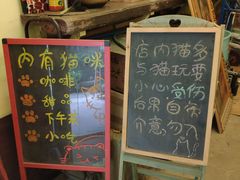 内有猫咪
咖啡
甜品
下午茶
小吃
店内猫多
与猫玩耍
小心受伤
后果自负
介意勿入